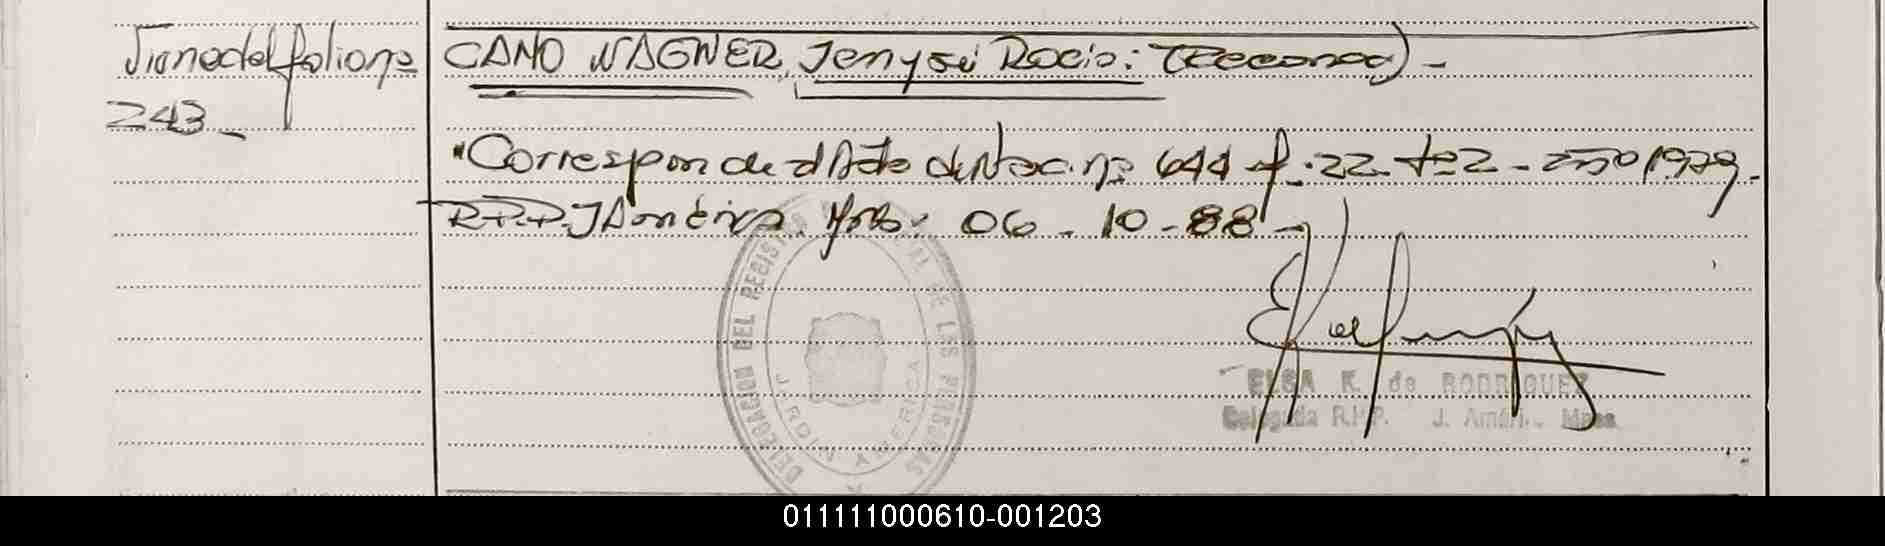 Viene del folio nº
243_
CANO WAGNER, Jenysé Rocio: (Reconoc) -
"Corresponde al Acta de Nac. nº 644 f. 22. tº 2 - año 1979.
R.P.P. J América. Mns: 06 - 10 - 88 -
DELEGACION DEL REGISTRO DE LAS PERSONAS
JARDIN AMERICA
ELSA K. de RODRIGUEZ
Delegada R.P.P. J. Amér. Mnes
011111000610-001203